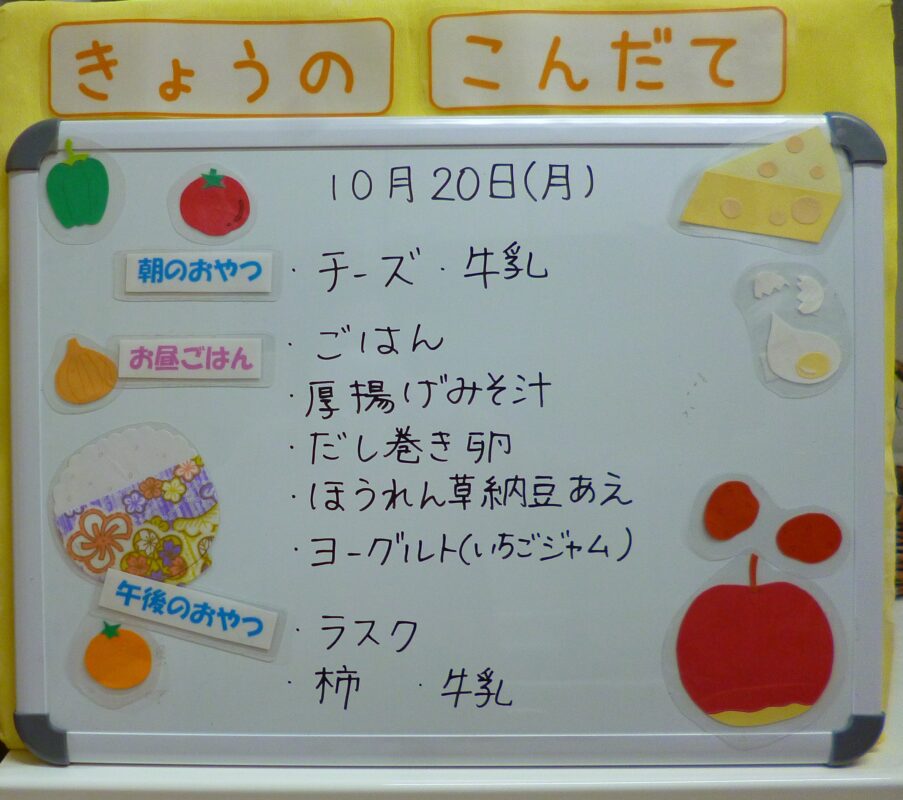 きょうの こんだて
10月20日(月)
朝のおやつ ・チーズ ・牛乳
お昼ごはん ・ごはん
・厚揚げみそ汁
・だし巻き卵
・ほうれん草納豆あえ
・ヨーグルト(いちごジャム)
午後のおやつ ・ラスク
・柿 ・牛乳